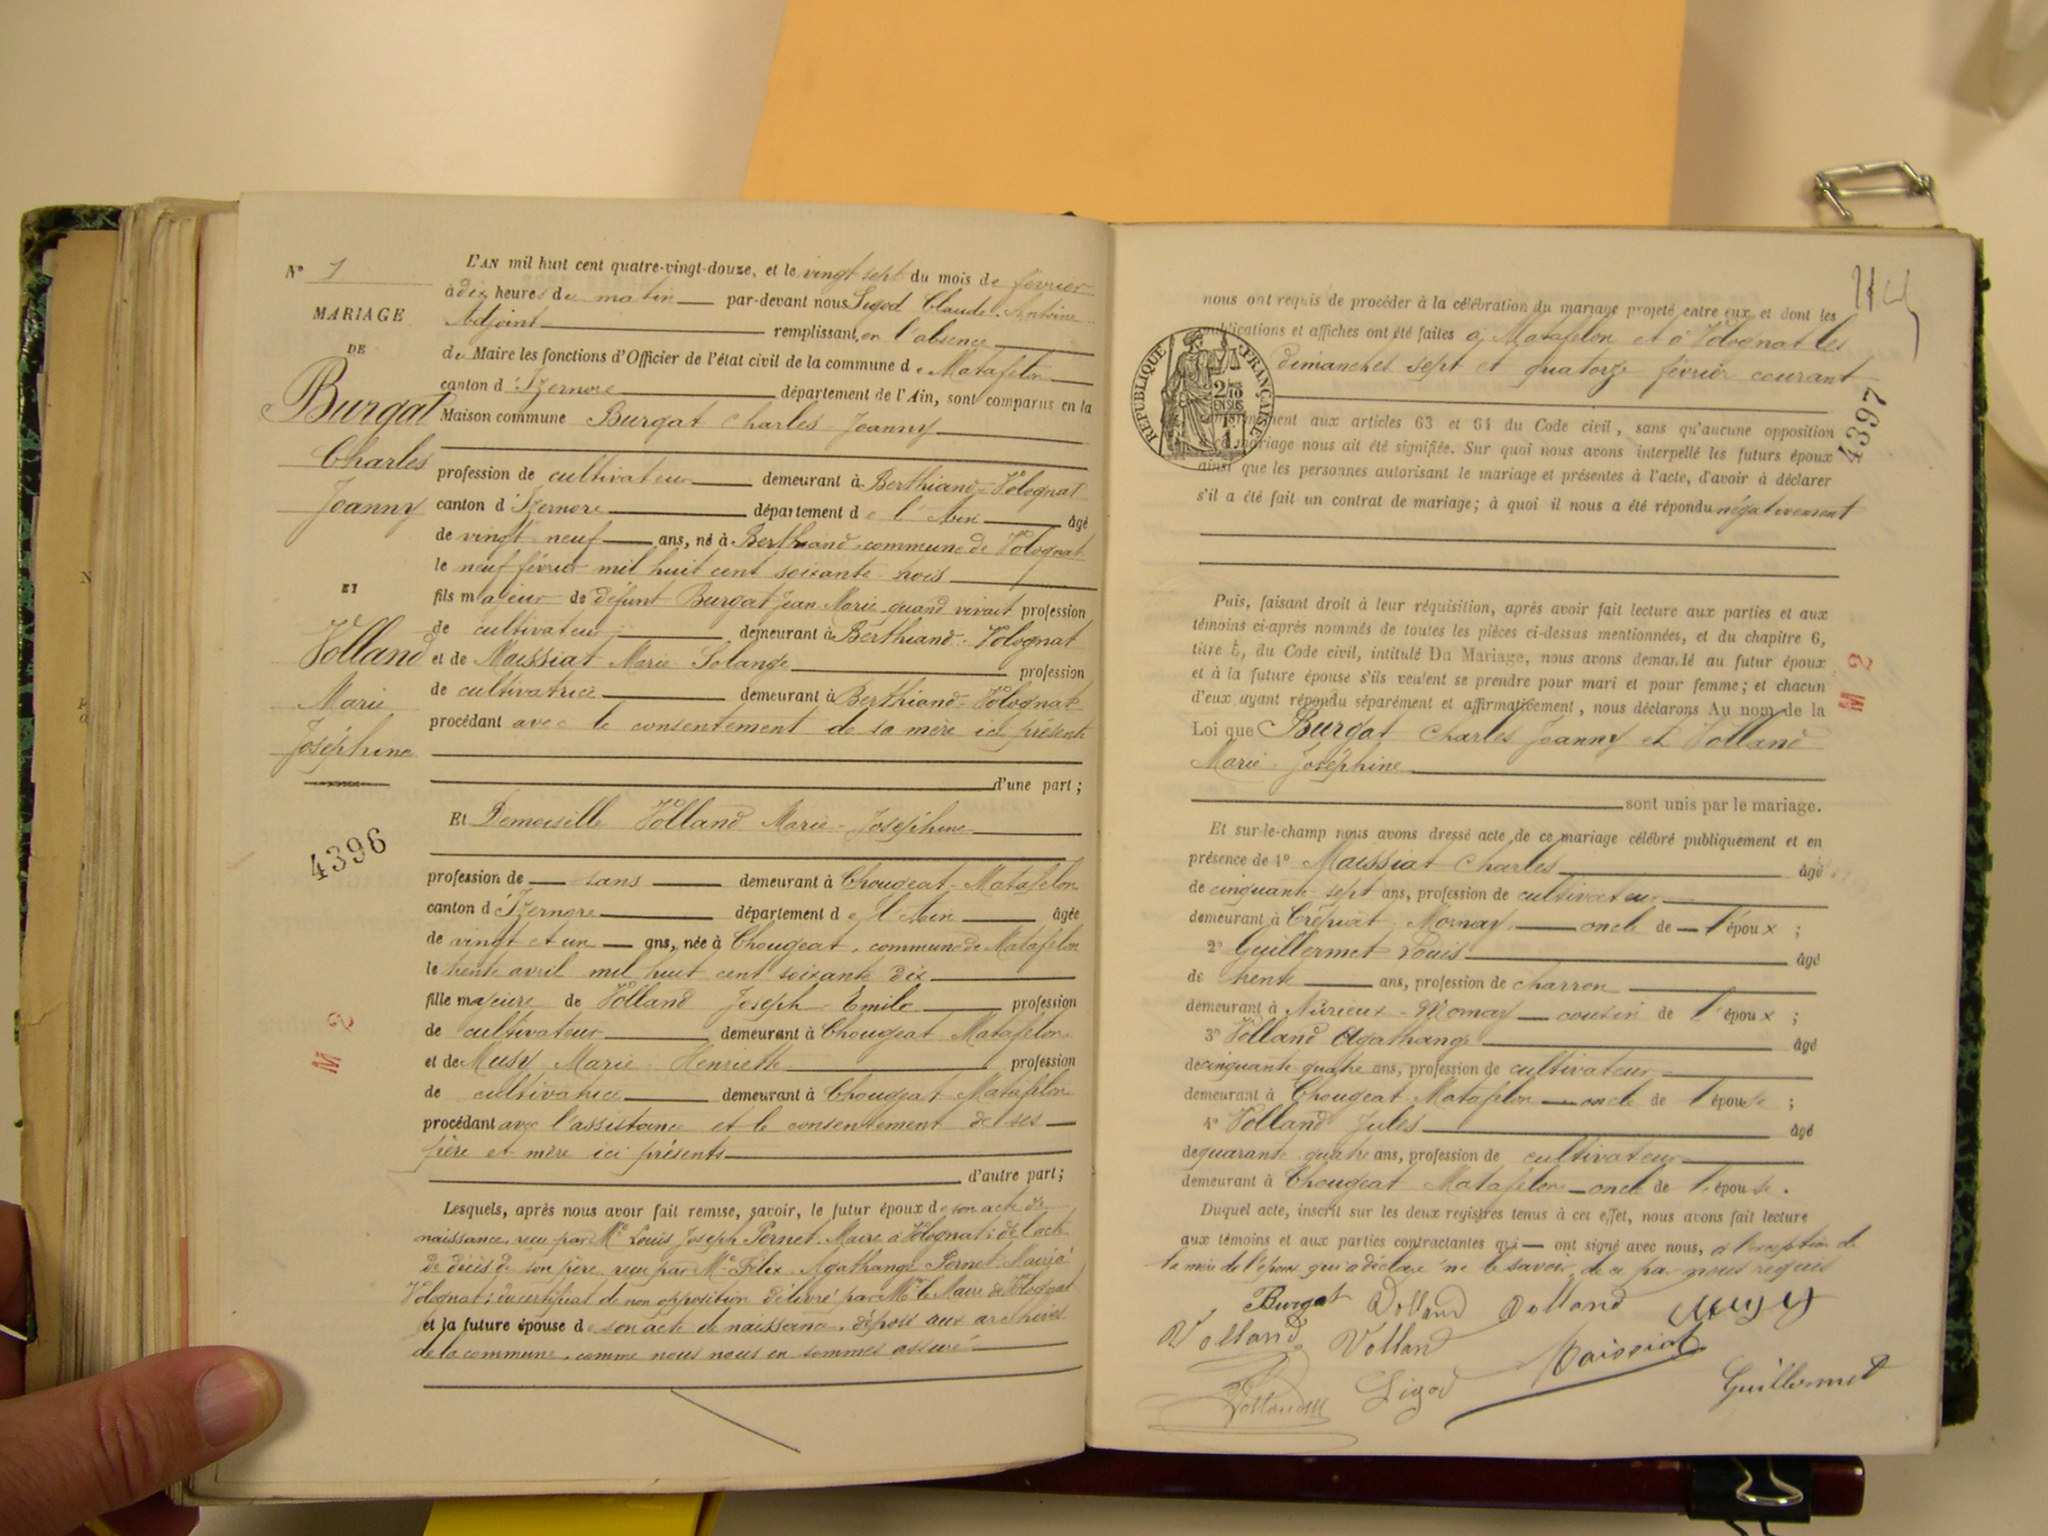 N° 1
MARIAGE
DE
Burgat
Charles
Joanny
ET
Volland
Marie
Joséphine
4396
M 2
L'AN mil huit cent quatre-vingt-douze, et le vingt sept du mois de février
à dix heures du matin par-devant nous Sigod Claude Antoine
Adjoint remplissant en l'absence
du Maire les fonctions d'Officier de l'état civil de la commune de Matafelon
canton d'Izernore département de l'Ain, sont comparus en la
Maison commune Burgat Charles Joanny
profession de cultivateur demeurant à Berthiand-Volognat
canton d'Izernore département de l'Ain âgé
de vingt neuf ans, né à Berthiand commune de Volognat
le neuf février mil huit cent soixante trois
fils majeur de défunt Burgat Jean Marie quand vivait profession
de cultivateur demeurant à Berthiand-Volognat
et de Maissiat Marie Solange profession
de cultivatrice demeurant à Berthiand-Volognat
procédant avec le consentement de sa mère ici présente
d'une part ;
Et Demoiselle Volland Marie-Joséphine
profession de sans demeurant à Chougeat-Matafelon
canton d'Izernore département de l'Ain âgée
de vingt et un ans, née à Chougeat, commune de Matafelon
le trente avril mil huit cent soixante dix
fille majeure de Volland Joseph-Emile profession
de cultivateur demeurant à Chougeat Matafelon
et de Musy Marie Henriette profession
de cultivatrice demeurant à Chougeat Matafelon
procédant avec l'assistance et le consentement de ses
père et mère ici présents
d'autre part ;
Lesquels, après nous avoir fait remise, savoir, le futur époux de son acte de
naissance, reçu par Mr Louis Joseph Pernet Maire à Volognat ; de l'acte
de décès de son père reçu par Mr Félix Agathange Pernet Maire à
Volognat ; du certificat de non opposition délivré par Mr le Maire de Volognat
et la future épouse de son acte de naissance, déposé aux archives
de la commune, comme nous nous en sommes assuré
114
nous ont requis de procéder à la célébration du mariage projeté entre eux et dont les
publications et affiches ont été faites à Matafelon et à Volognat les
dimanches sept et quatorze février courant
REPUBLIQUE FRANÇAISE
2/10 EN SUS
4397
aux articles 63 et 64 du Code civil, sans qu'aucune opposition
mariage nous ait été signifiée. Sur quoi nous avons interpellé les futurs époux
ainsi que les personnes autorisant le mariage et présentes à l'acte, d'avoir à déclarer
s'il a été fait un contrat de mariage ; à quoi il nous a été répondu négativement
Puis, faisant droit à leur réquisition, après avoir fait lecture aux parties et aux
témoins ci-après nommés de toutes les pièces ci-dessus mentionnées, et du chapitre 6,
titre 5, du Code civil, intitulé Du Mariage, nous avons demandé au futur époux
et à la future épouse s'ils veulent se prendre pour mari et pour femme ; et chacun
d'eux ayant répondu séparément et affirmativement, nous déclarons Au nom de la
Loi que Burgat Charles Joanny et Volland
Marie-Joséphine
sont unis par le mariage.
M 2
Et sur-le-champ nous avons dressé acte de ce mariage célébré publiquement et en
présence de 1° Maissiat Charles âgé
de cinquante sept ans, profession de cultivateur
demeurant à Crépiat Mornay oncle de l'époux ;
2° Guillermet Louis âgé
de trente ans, profession de charron
demeurant à Nurieux-Mornay cousin de l'époux ;
3° Volland Agathange âgé
de cinquante quatre ans, profession de cultivateur
demeurant à Chougeat Matafelon oncle de l'épouse ;
4° Volland Jules âgé
de quarante quatre ans, profession de cultivateur
demeurant à Chougeat Matafelon oncle de l'épouse.
Duquel acte, inscrit sur les deux registres tenus à cet effet, nous avons fait lecture
aux témoins et aux parties contractantes qui ont signé avec nous, à l'exception de
la mère de l'époux qui a déclaré ne le savoir, de ce par nous requis
Burgat Volland Volland Musy
Volland Volland Maissiat
Volland Sigod Guillermet